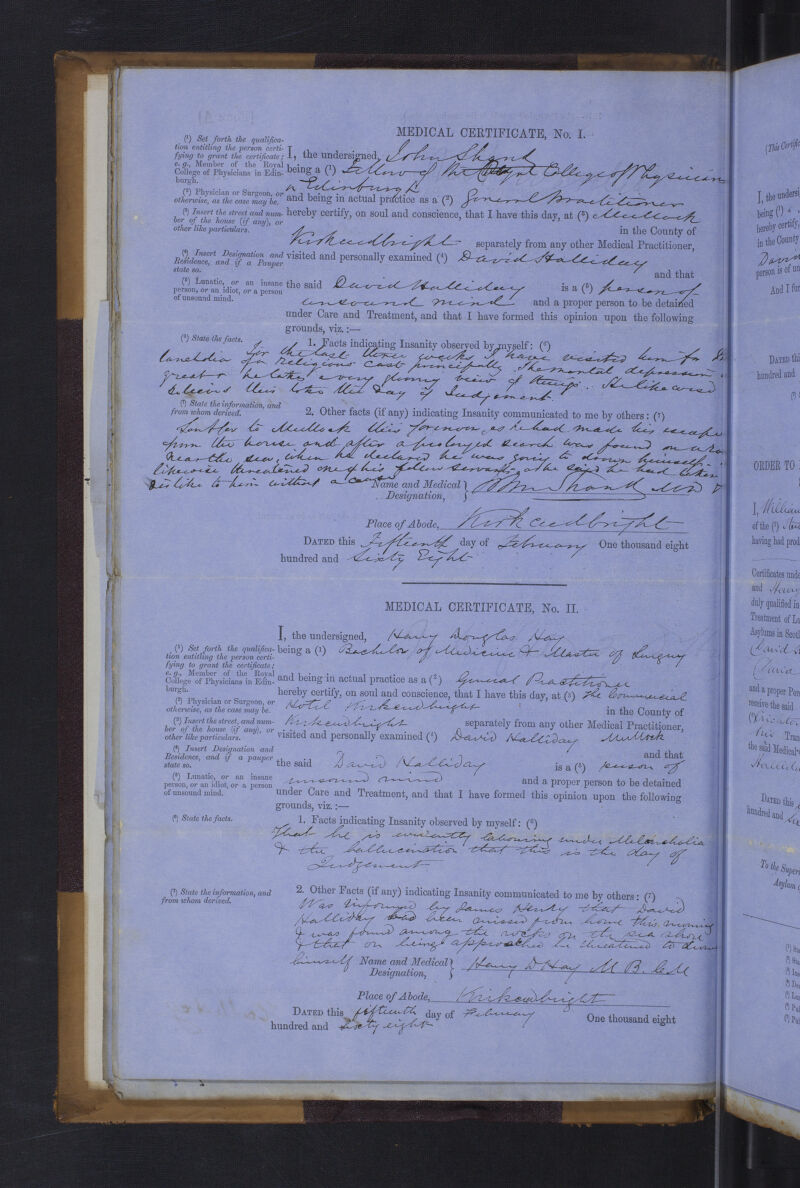 MEDICAL CERTIFICATE, No. I.
(¹) Set forth the qualifica-
tion entitling the person certi-
fying to grant the certificate;
e.g., Member of the Royal
College of Physicians in Edin-
burgh.
(²) Physician or Surgeon, or
otherwise, as the case may be.
(³) Insert the street and num-
ber of the house (if any), or
other like particulars.
(⁴) Insert Designation and
Residence, and if a Pauper
state so.
(⁵) Lunatic, or an insane
person, or an idiot, or a person
of unsound mind.
I, the undersigned, John Shand
being a (¹) Fellow of the Royal College of Physicians
in Edinburgh
and being in actual practice as a (²) General Practitioner
hereby certify, on soul and conscience, that I have this day, at (³) Mullock
in the County of
Kirkcudbright separately from any other Medical Practitioner,
visited and personally examined (⁴) David Halliday
and that
the said David Halliday is a (⁵) person of
unsound mind and a proper person to be detained
under Care and Treatment, and that I have formed this opinion upon the following
grounds, viz.:—
(⁶) State the facts.
1. Facts indicating Insanity observed by myself: (⁶)
for the last three weeks I have visited him for
of a religious cast principally. The mental depression is
great & he takes a very gloomy view of things. He likewise
believes this to be the Day of Judgement.
(⁷) State the information, and
from whom derived.
2. Other facts (if any) indicating Insanity communicated to me by others: (⁷)
Sent for to Mullock this forenoon, as he had made his escape
from the house and after a prolonged search was found on
near the sea, when he declared he was going to drown himself.
likewise threatened one of his fellow servants, as he said he had taken
dislike to him without a cause
Name and Medical
Designation,
John Shand MD
Place of Abode, Kirkcudbright
DATED this Fifteenth day of February One thousand eight
hundred and Sixty Eight
MEDICAL CERTIFICATE, No. II.
(¹) Set forth the qualifica-
tion entitling the person certi-
fying to grant the certificate;
e.g., Member of the Royal
College of Physicians in Edin-
burgh.
(²) Physician or Surgeon, or
otherwise, as the case may be.
(³) Insert the street, and num-
ber of the house (if any), or
other like particulars.
(⁴) Insert Designation and
Residence, and if a pauper
state so.
(⁵) Lunatic, or an insane
person, or an idiot, or a person
of unsound mind.
I, the undersigned, Harry Douglas Hay
being a (¹) Bachelor of Medicine & Master of Surgery
and being in actual practice as a (²) General Practitioner
hereby certify, on soul and conscience, that I have this day, at (³) The Commercial
Hotel Kirkcudbright in the County of
Kirkcudbright separately from any other Medical Practitioner,
visited and personally examined (⁴) David Halliday Mullock
and that
the said David Halliday is a (⁵) person of
unsound mind and a proper person to be detained
under Care and Treatment, and that I have formed this opinion upon the following
grounds, viz.:—
(⁶) State the facts.
1. Facts indicating Insanity observed by myself: (⁶)
That he is evidently labouring under Melancholia
& the hallucination that this is the day of
Judgement
(⁷) State the information, and
from whom derived.
2. Other Facts (if any) indicating Insanity communicated to me by others: (⁷)
Was informed by James Henry that David
Halliday had been missed from home this morning
& was found among the rocks on the sea shore
& that on being approached he threatened to drown
himself
Name and Medical
Designation,
Harry D Hay M B. C M
Place of Abode, Kirkcudbright
DATED this fifteenth day of February One thousand eight
hundred and sixty eight
(This Certific
I, the undersi
being (¹)
hereby certify,
in the County
David
person is of un
And I fur
DATED thi
hundred and
ORDER TO
I, William
of the (¹)
having had prod
Certificates unde
and
duly qualified in
Treatment of Lu
Asylums in Scotl
David
and a proper Per
receive the said
Tran
the said Medical
DATED this
hundred and
To the Superi
Asylum